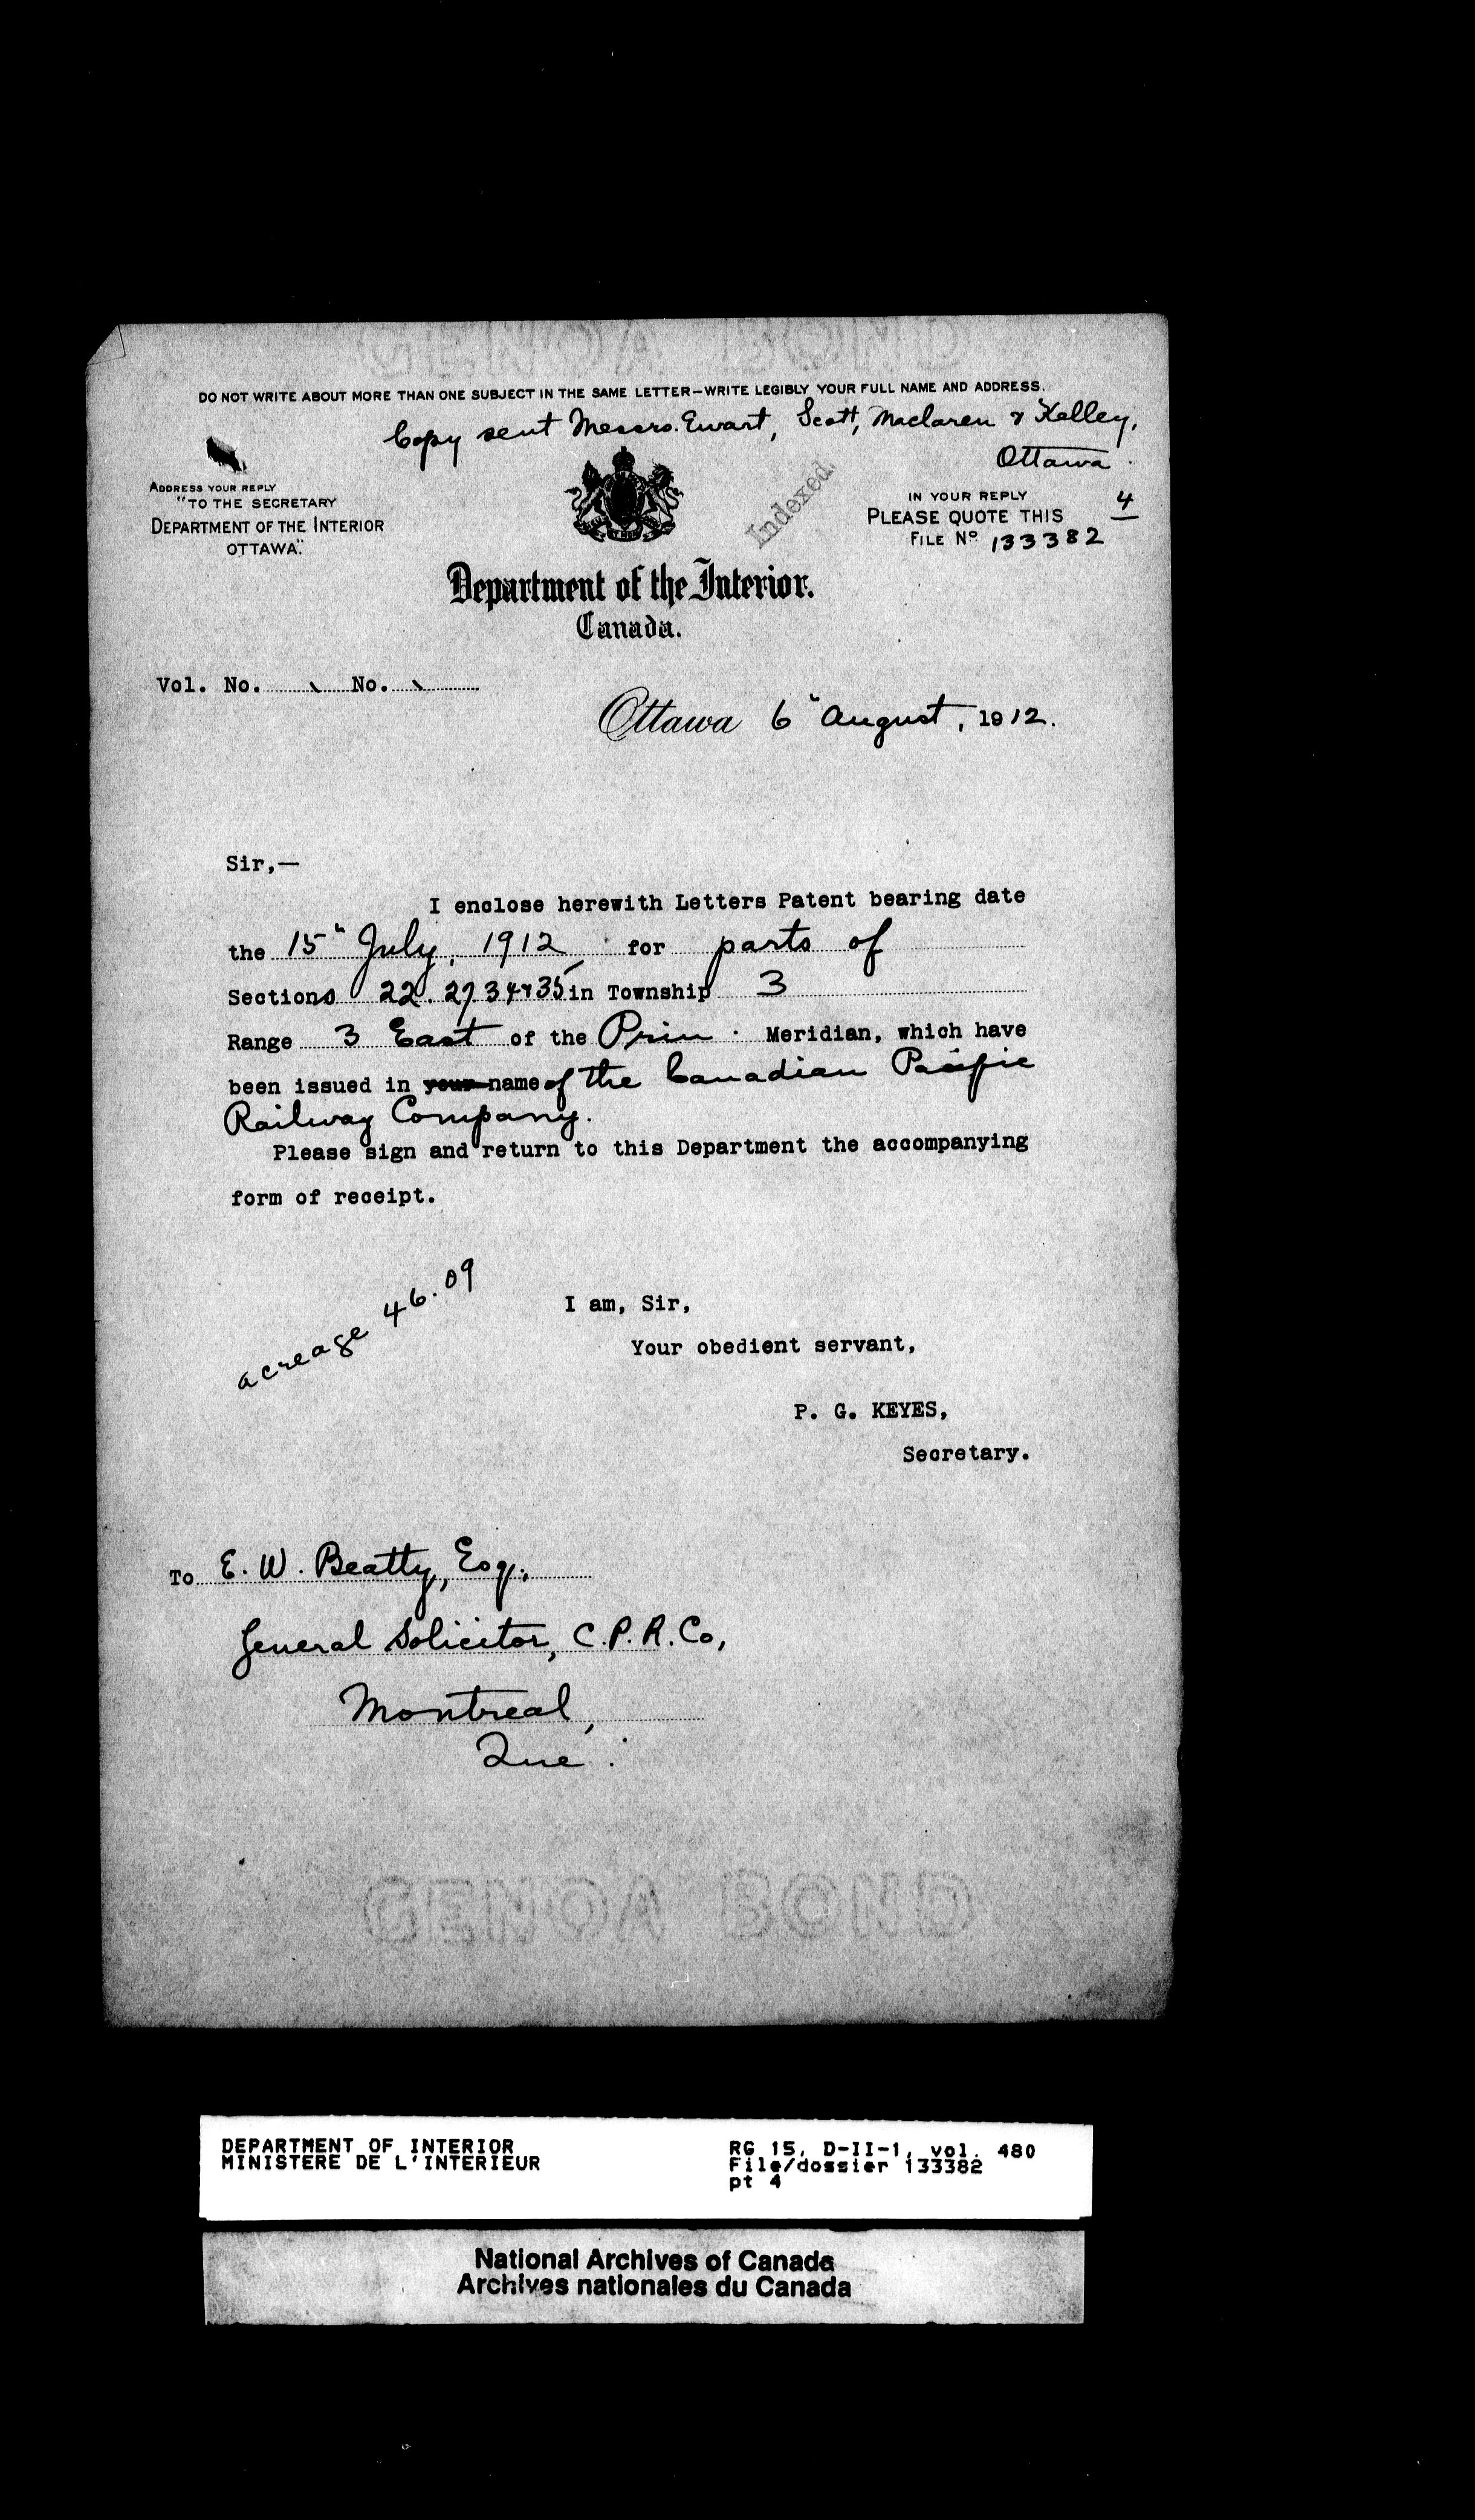 GENOA BOND
DO NOT WRITE ABOUT MORE THAN ONE SUBJECT IN THE SAME LETTER—WRITE LEGIBLY YOUR FULL NAME AND ADDRESS.
Copy sent Messrs. Ewart, Scott, Maclaren & Kelley,
Ottawa.
ADDRESS YOUR REPLY
"TO THE SECRETARY
DEPARTMENT OF THE INTERIOR
OTTAWA."
Indexed
IN YOUR REPLY
PLEASE QUOTE THIS 4
FILE No 133382
Department of the Interior.
Canada.
Vol. No. No.
Ottawa 6" August, 1912.
Sir,—
I enclose herewith Letters Patent bearing date
the 15" July, 1912, for parts of
Sections 22. 27 34 & 35 in Township 3
Range 3 East of the Prin. Meridian, which have
been issued in your name of the Canadian Pacific
Railway Company.
Please sign and return to this Department the accompanying
form of receipt.
acreage 46.09
I am, Sir,
Your obedient servant,
P. G. KEYES,
Secretary.
To E. W. Beatty, Esq.,
General Solicitor, C.P.R. Co,
Montreal,
Que.
GENOA BOND
DEPARTMENT OF INTERIOR
MINISTERE DE L'INTERIEUR
RG 15, D-II-1, vol. 480
File/dossier 133382
pt 4
National Archives of Canada
Archives nationales du Canada